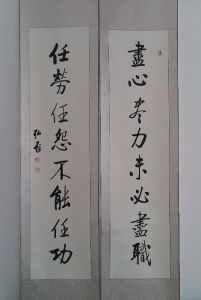 盡心尽力未必盡職
任勞任怨不能任功